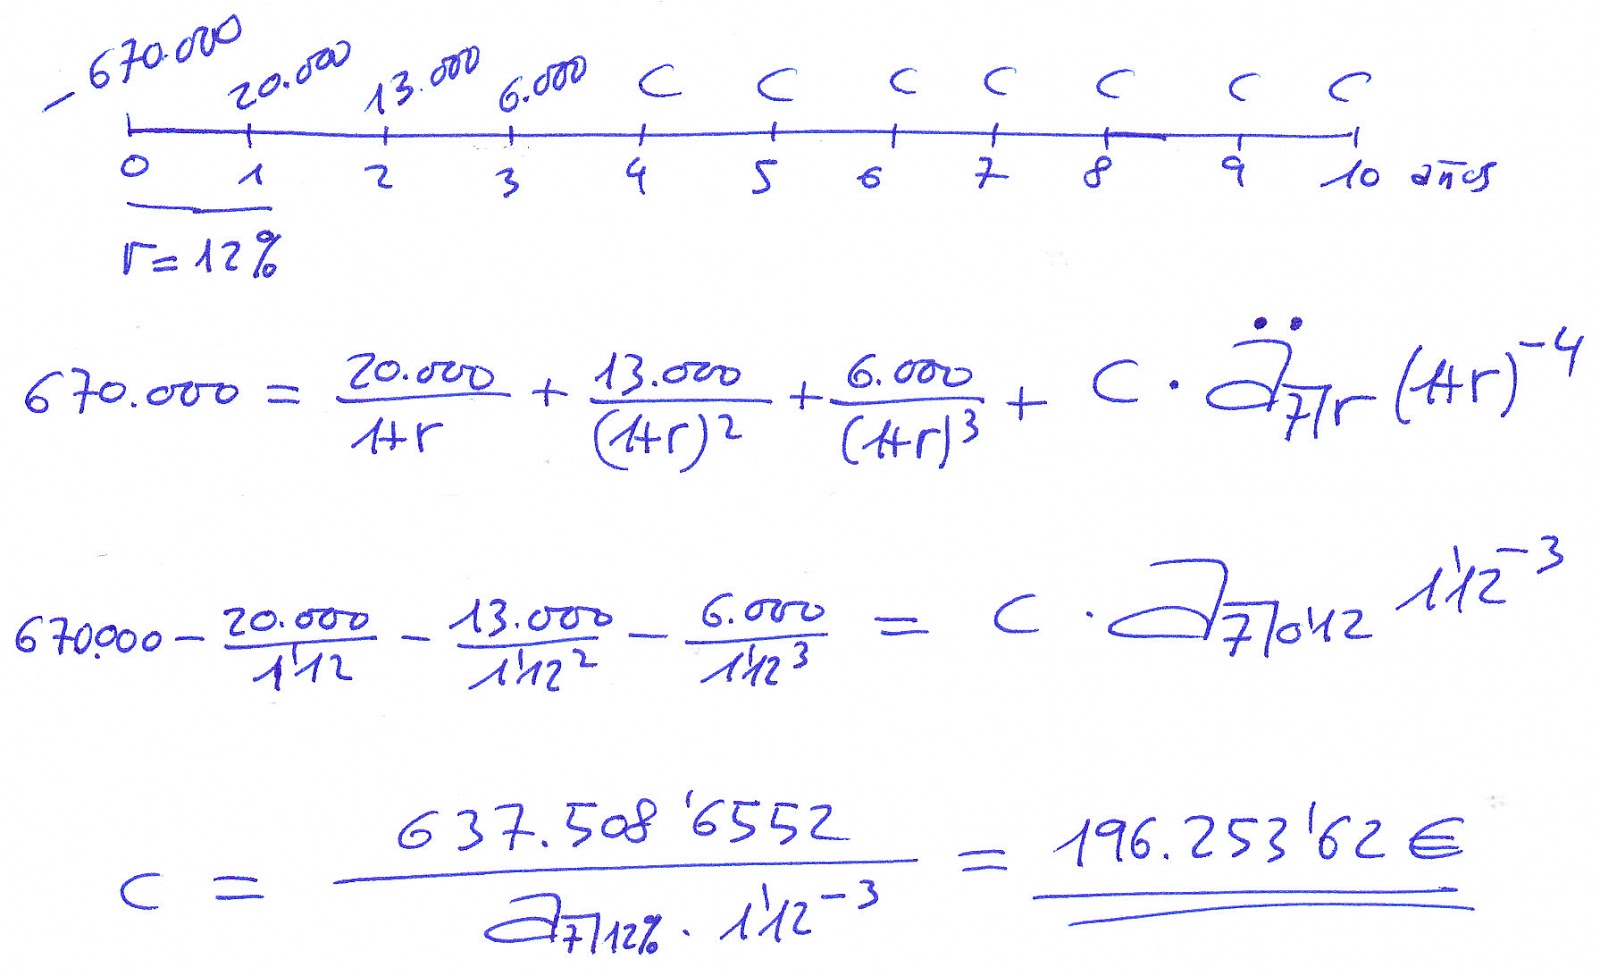 -670.000 20.000 13.000 6.000 C C C C C C C
0 1 2 3 4 5 6 7 8 9 10 años
r = 12%
670.000 = 20.000/(1+r) + 13.000/(1+r)² + 6.000/(1+r)³ + C · ä₇˥r (1+r)⁻⁴
670.000 - 20.000/1'12 - 13.000/1'12² - 6.000/1'12³ = C · a₇˥0'12 1'12⁻³
C = 637.508'6552/(a₇˥12% · 1'12⁻³) = 196.253'62 €